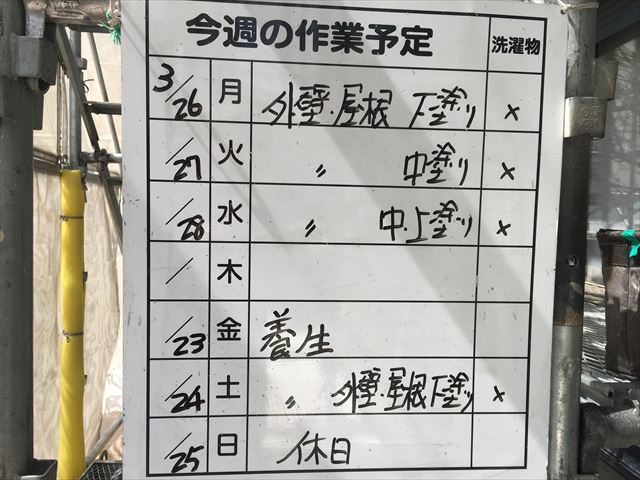 今週の作業予定 洗濯物
3/26 月 外壁・屋根 下塗り ×
/27 火 〃 中塗り ×
/28 水 〃 中・上塗り ×
/ 木
/23 金 養生
/24 土 〃 外壁・屋根下塗り ×
/25 日 休日